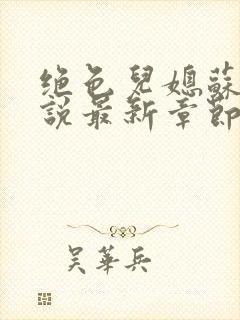 绝色兒媳蘇
說最新章節
吴華兵